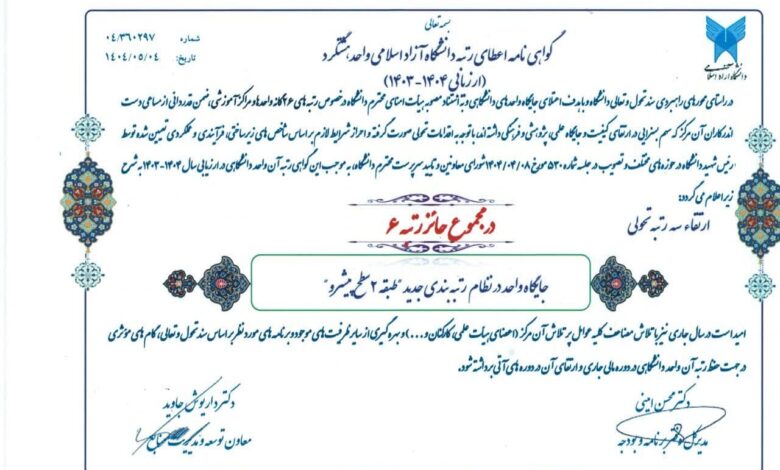 بسمه تعالی
گواهی نامه اعطای رتبه دانشگاه آزاد اسلامی واحد هشتگرد
(ارزیابی ۱۴۰۴-۱۴۰۳)
شماره ۰۴/۳۶۰۲۹۷
تاریخ: ۱۴۰۴/۰۵/۰۴
دانشگاه آزاد اسلامی
در راستای محورهای راهبردی سند تحول و تعالی دانشگاه و با هدف اعتلای جایگاه واحدهای دانشگاهی و به استناد مصوبه هیات امنای محترم دانشگاه در خصوص رتبه های ۲۶ گانه واحدها و مراکز آموزشی، ضمن قدردانی از مساعی دست
اندرکاران آن مرکز که سهم بسزایی در ارتقای کیفیت و جایگاه علمی، پژوهشی و فرهنگی داشته اند، با توجه به اقدامات تحولی صورت گرفته و احراز شرایط لازم بر اساس شاخص های زیرساختی، فرآیندی و عملکردی تعیین شده توسط
رئیس شهید دانشگاه در حوزه های مختلف و تصویب در جلسه شماره ۵۳۰ مورخ ۱۴۰۴/۰۴/۰۸ شورای معاونین و تایید سرپرست محترم دانشگاه، به موجب این گواهی رتبه آن واحد دانشگاهی در ارزیابی سال ۱۴۰۴-۱۴۰۳ به شرح
زیر اعلام می گردد:
ارتقاء سه رتبه تحولی
در مجموع حائز رتبه ۶
جایگاه واحد در نظام رتبه بندی جدید "طبقه ۲ سطح پیشرو"
امید است در سال جاری نیز با تلاش مضاعف کلیه عوامل پر تلاش آن مرکز (اعضای هیات علمی، کارکنان و ...) و بهره گیری از سایر ظرفیت های موجود و برنامه های مورد نظر بر اساس سند تحول و تعالی، گام های مؤثری
در جهت حفظ رتبه آن واحد دانشگاهی در دوره مالی جاری و ارتقای آن در دوره های آتی برداشته شود.
دکتر محسن امینی
مدیرکل دفتر برنامه و بودجه
دکتر داریوش جاوید
معاون توسعه و مدیریت منابع